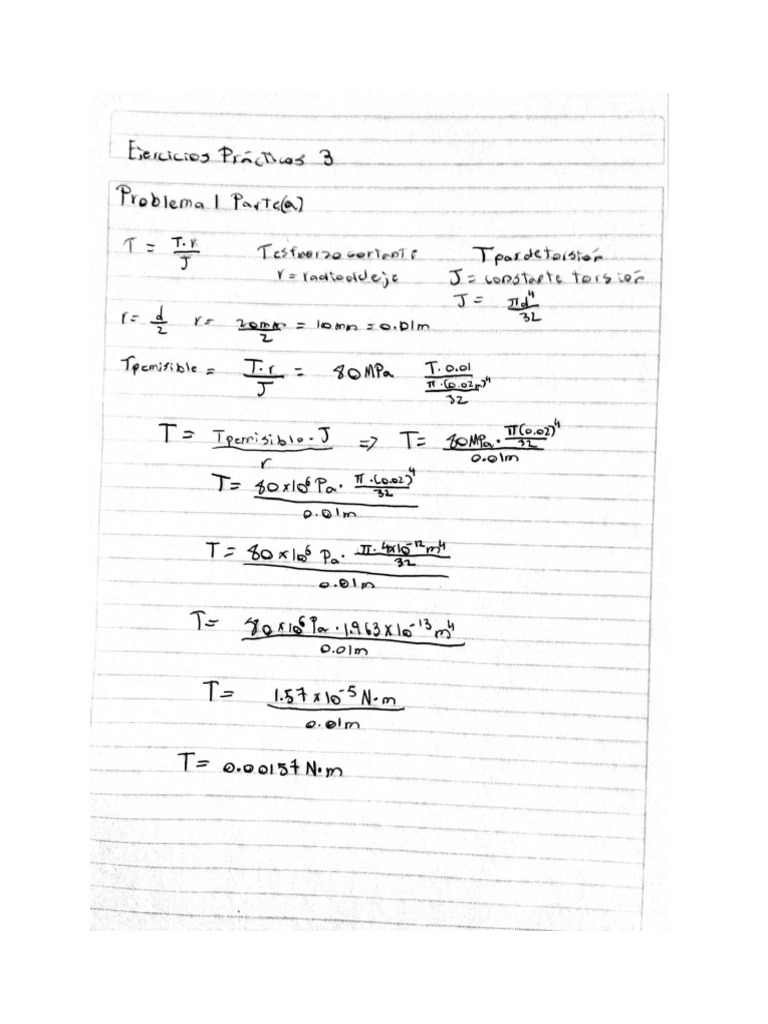 Ejercicios Prácticos 3
Problema 1 Parte(a)
τ = T·r/J    τ esfuerzo cortante    T par de torsión
r = radio del eje    J = constante torsión
J = πd⁴/32
r = d/2    r = 20mm/2 = 10mm = 0.01m
τ permisible = T·r/J = 80MPa    T·0.01/(π·(0.02m)⁴/32)
T = τ permisible·J/r => T = 80MPa·π(0.02)⁴/32 / 0.01m
T = 80x10⁶ Pa·π·(0.02)⁴/32 / 0.01m
T = 80x10⁶ Pa·π·4x10⁻¹² m⁴/32 / 0.01m
T = 80x10⁶ Pa·1.963x10⁻¹³ m⁴ / 0.01m
T = 1.57x10⁻⁵ N·m / 0.01m
T = 0.00157 N·m